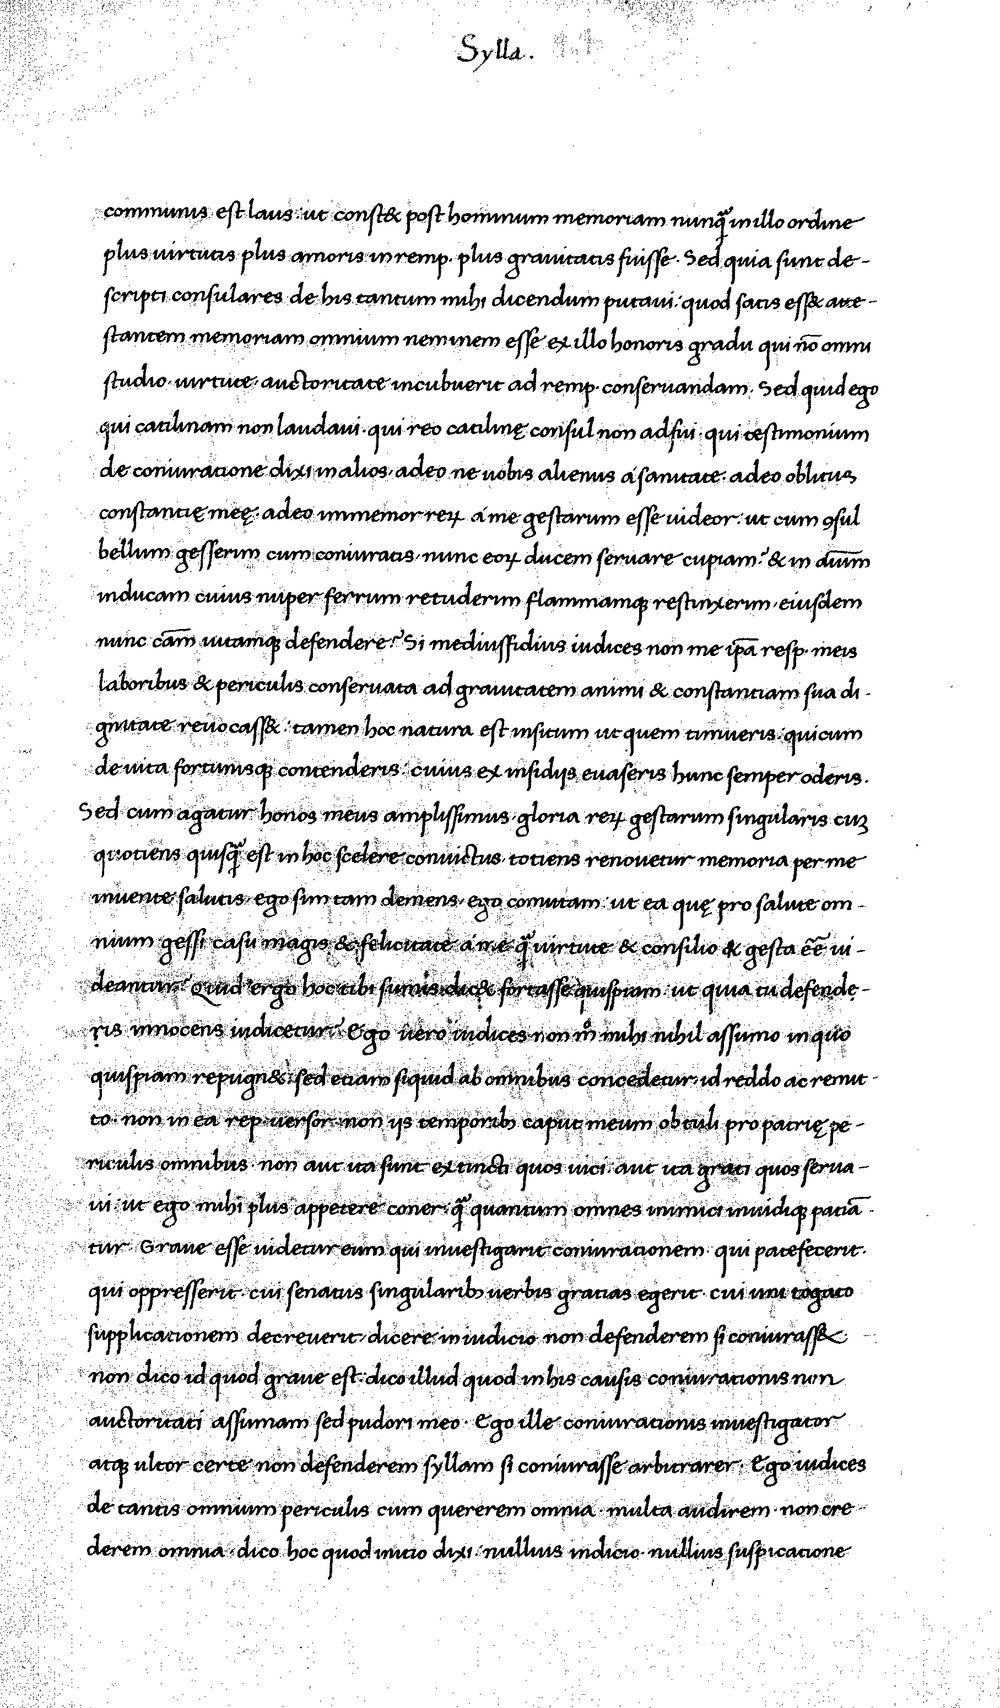 Sylla.
communis est laus: ut const& post hominum memoriam nunq̃ in illo ordine
plus uirtutis plus amoris in remp. plus grauitatis fuisse. Sed quia sunt de-
scripti consulares de his tantum mihi dicendum putaui: quod satis ess& atte-
stantem memoriam omnium neminem esse ex illo honoris gradu qui nō omni
studio. uirtute. auctoritate incubuerit ad remp. conseruandam. Sed quid ego
qui catilinam non laudaui. qui reo catilinę consul non adfui. qui testimonium
de coniuratione dixi in alios. adeo ne uobis alienus á sanitate. adeo oblitus
constantię meę. adeo immemor reꝝ á me gestarum esse uideor: ut cum ꝯsul
bellum gesserim cum coniuratis. nunc eoꝝ ducem seruare cupiam? & in aīum
inducam cuius nuper ferrum retuderim flammamq; restinxerim. eiusdem
nunc cām uitamq; defendere? Si mediusfidius iudices non me ip̄a resp. meis
laboribus & periculis conseruata ad grauitatem animi & constantiam sua di-
gnitate reuocass&: tamen hoc natura est insitum ut quem timueris. quicum
de uita fortunisq; contenderis: cuius ex insidijs euaseris hunc semper oderis.
Sed cum agatur honos meus amplissimus. gloria reꝝ gestarum singularis cuꝫ
quotiens quisq̃ est in hoc scelere conuictus. totiens renouetur memoria per me
inuente salutis. ego sim tam demens. ego comittam: ut ea quę pro salute om-
nium gessi casu magis & felicitate á me q̃ uirtute & consilio & gesta eē ui-
deantur? Quid ergo hoc tibi sumis. dic& fortasse quispiam. ut quia tu defendę-
ris innocens iudicetur? Ego uero iudices non m̊ mihi nihil assumo in quo
quispiam repugn&: sed etiam siquid ab omnibus concedetur. id reddo ac remit-
to. non in ea rep. uersor. non ijs temporibꝫ caput meum obtuli pro patrię pe-
riculis omnibus. non aut ita sunt extincti quos uici. aut ita grati quos serua-
ui: ut ego mihi plus appetere coner. q̃ quantum omnes inimici inuidiq; patiā-
tur. Graue esse uidetur eum qui inuestigarit coniurationem. qui patefecerit.
qui oppresserit. cui senatus singularibꝫ uerbis gratias egerit. cui uni togato
supplicationem decreuerit. dicere in iudicio non defenderem si coniurass&
non dico id quod graue est. dico illud quod in his causis coniurationis non
auctoritati assumam sed pudori meo. Ego ille coniurationis inuestigator
atq; ultor certe non defenderem syllam si coniurasse arbitrarer. Ego iudices
de tantis omnium periculis cum quererem omnia. multa audirem. non cre-
derem omnia. dico hoc quod initio dixi. nullius indicio. nullius suspicatione